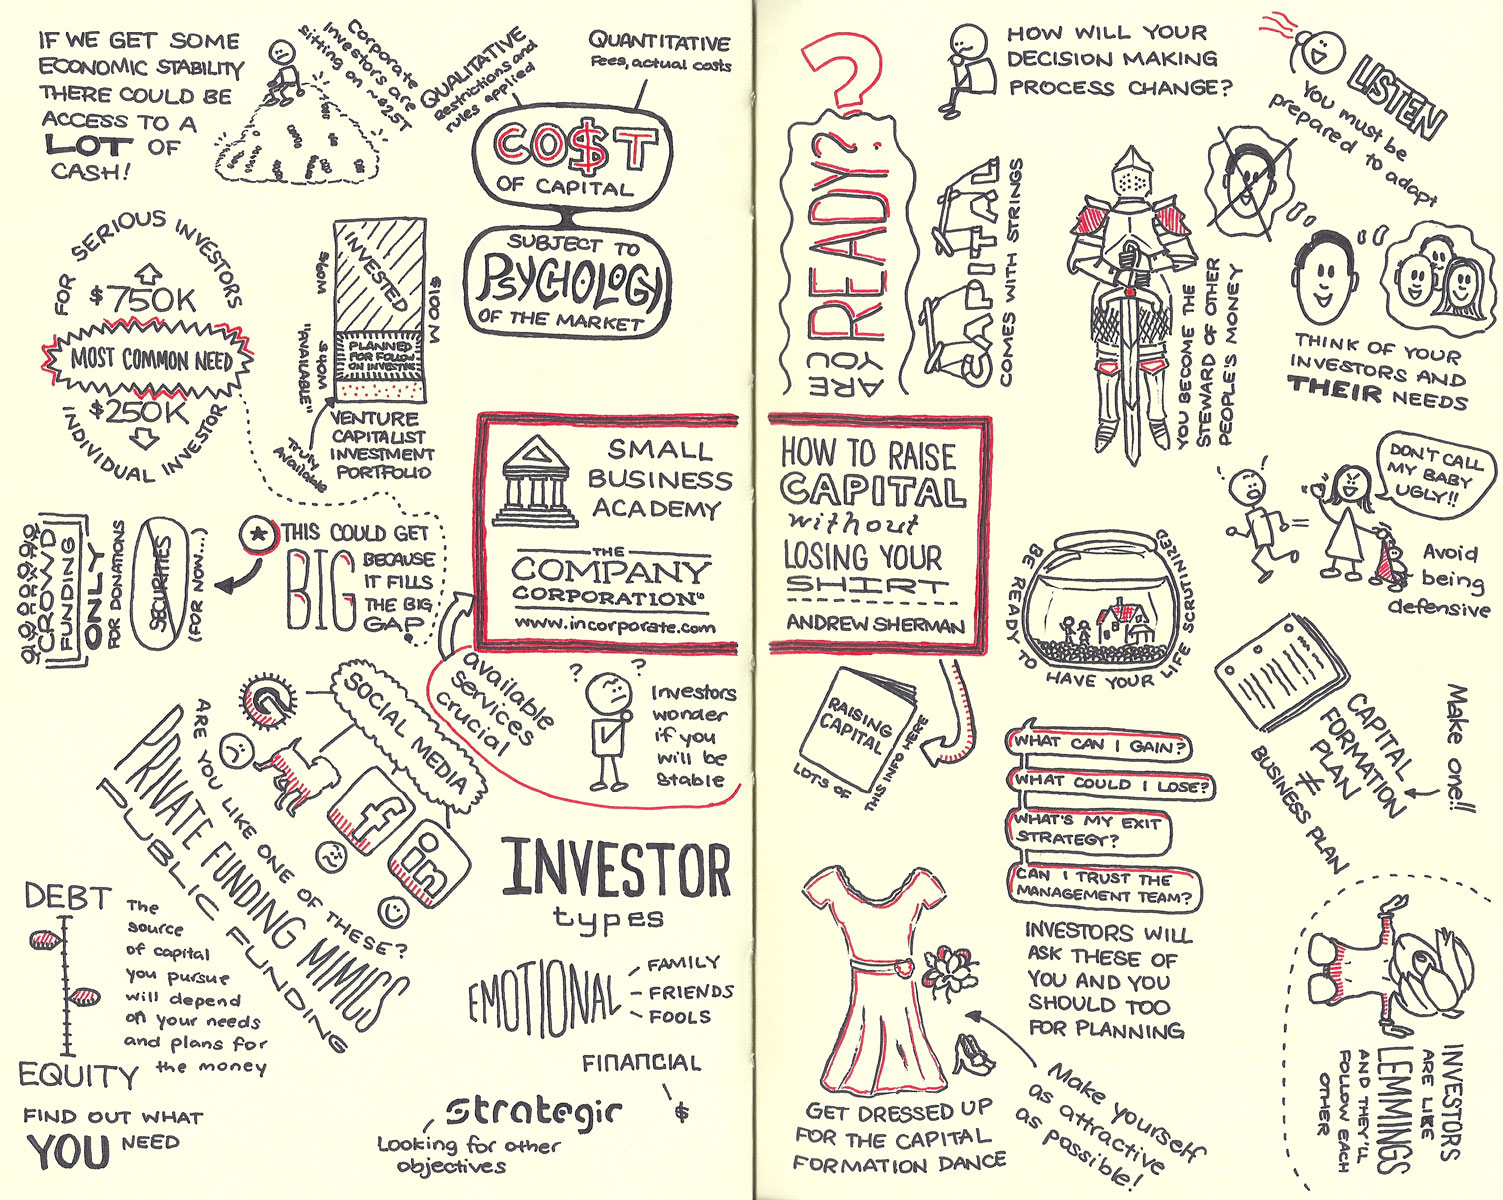 IF WE GET SOME
ECONOMIC STABILITY
THERE COULD BE
ACCESS TO A
LOT OF
CASH!
Corporate
Investors are
sitting on ~$2.5T
QUALITATIVE
Restrictions and
rules applied
QUANTITATIVE
Fees, actual costs
CO$T
OF CAPITAL
SUBJECT TO
PSYCHOLOGY
OF THE MARKET
FOR SERIOUS INVESTORS
$750K
MOST COMMON NEED
$250K
INDIVIDUAL INVESTOR
INVESTED
PLANNED
FOR FOLLOW
ON INVESTING
$60M
$40M
"AVAILABLE"
$100M
Truly
Available
VENTURE
CAPITALIST
INVESTMENT
PORTFOLIO
CROWD
FUNDING
ONLY
FOR DONATIONS
SECURITIES
(FOR NOW...)
THIS COULD GET
BIG
BECAUSE
IT FILLS
THE BIG
GAP
SMALL
BUSINESS
ACADEMY
THE
COMPANY
CORPORATION
www.incorporate.com
available
services
crucial
Investors
wonder
if you
will be
stable
SOCIAL MEDIA
f
in
ARE YOU LIKE ONE OF THESE?
PRIVATE FUNDING MIMICS
PUBLIC FUNDING
DEBT
EQUITY
The
source
of capital
you pursue
will depend
on your needs
and plans for
the money
FIND OUT WHAT
YOU NEED
INVESTOR
types
EMOTIONAL
- FAMILY
- FRIENDS
- FOOLS
FINANCIAL
$
strategic
Looking for other
objectives
ARE YOU
READY?
CAPITAL
COMES WITH STRINGS
HOW WILL YOUR
DECISION MAKING
PROCESS CHANGE?
LISTEN
You must be
prepared to adapt
YOU BECOME THE
STEWARD OF OTHER
PEOPLE'S MONEY
THINK OF YOUR
INVESTORS AND
THEIR NEEDS
HOW TO RAISE
CAPITAL
without
LOSING YOUR
SHIRT
ANDREW SHERMAN
BE READY TO
HAVE YOUR
LIFE SCRUTINIZED
=
DON'T CALL
MY BABY
UGLY!!
Avoid
being
defensive
RAISING
CAPITAL
LOTS OF
THIS INFO HERE
WHAT CAN I GAIN?
WHAT COULD I LOSE?
WHAT'S MY EXIT
STRATEGY?
CAN I TRUST THE
MANAGEMENT TEAM?
INVESTORS WILL
ASK THESE OF
YOU AND YOU
SHOULD TOO
FOR PLANNING
CAPITAL
FORMATION
PLAN
≠
BUSINESS PLAN
Make one!!
GET DRESSED UP
FOR THE CAPITAL
FORMATION DANCE
Make yourself
as attractive
as possible!
INVESTORS
ARE LIKE
LEMMINGS
AND THEY'LL
FOLLOW EACH
OTHER